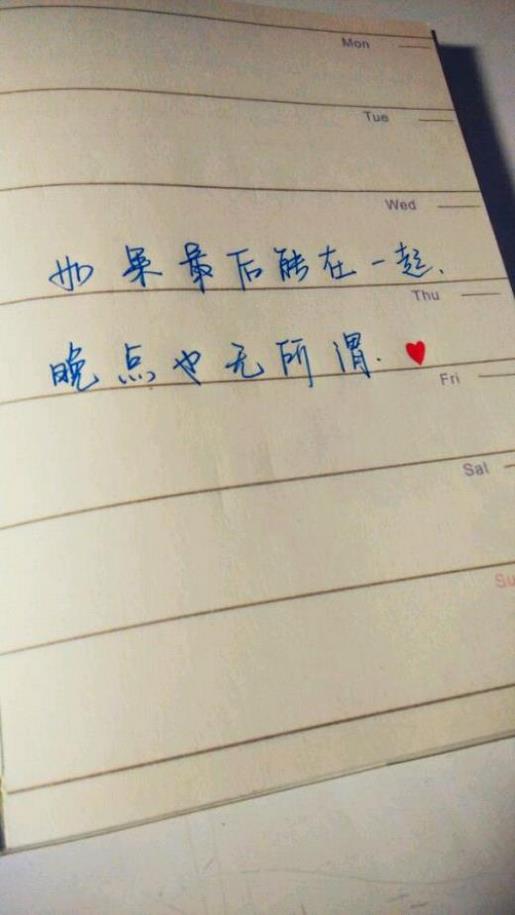 Mon
Tue
Wed
如果最后能在一起.
Thu
晚点也无所谓.
Fri
Sat
Su